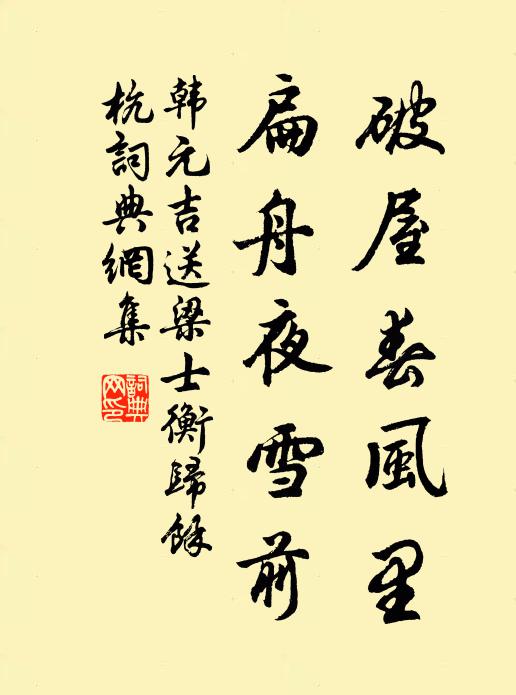 破屋春風里
扁舟夜雪前
韩元吉送梁士衡歸餘
杭詞典網集
詞典
网印